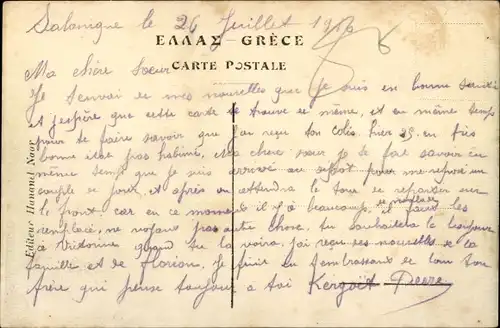 Salonique le 26 Juillet 1916
ΕΛΛΑΣ - GRÈCE
CARTE POSTALE
Ma chère Soeur
Je t'envoi de mes nouvelles que je suis en bonne santé
et j'espère que cette carte te trouve de même, et en même temps
pour te faire savoir que j'ai reçu ton Colis hier 25. en très
bonne état pas habimé, Ma chere soeur je te fait savoir en
même temps que je suis arrivé au dépot pour me reposé un
couple de jours, et après on attendra le tour de repartir sur
le front, car en ce moment il y a beaucoup, il faut les
remplacé
remplacé, ne voyant pas autre chose, tu souhaitera le bonjour
à Victorine quand tu la voira, j'ai reçu des nouvelles de la
famille et de Florian, Je finie en t'embrassant de loin ton
frère qui pense toujours à toi Kergoët Pierre
Editeur Hananel Naar